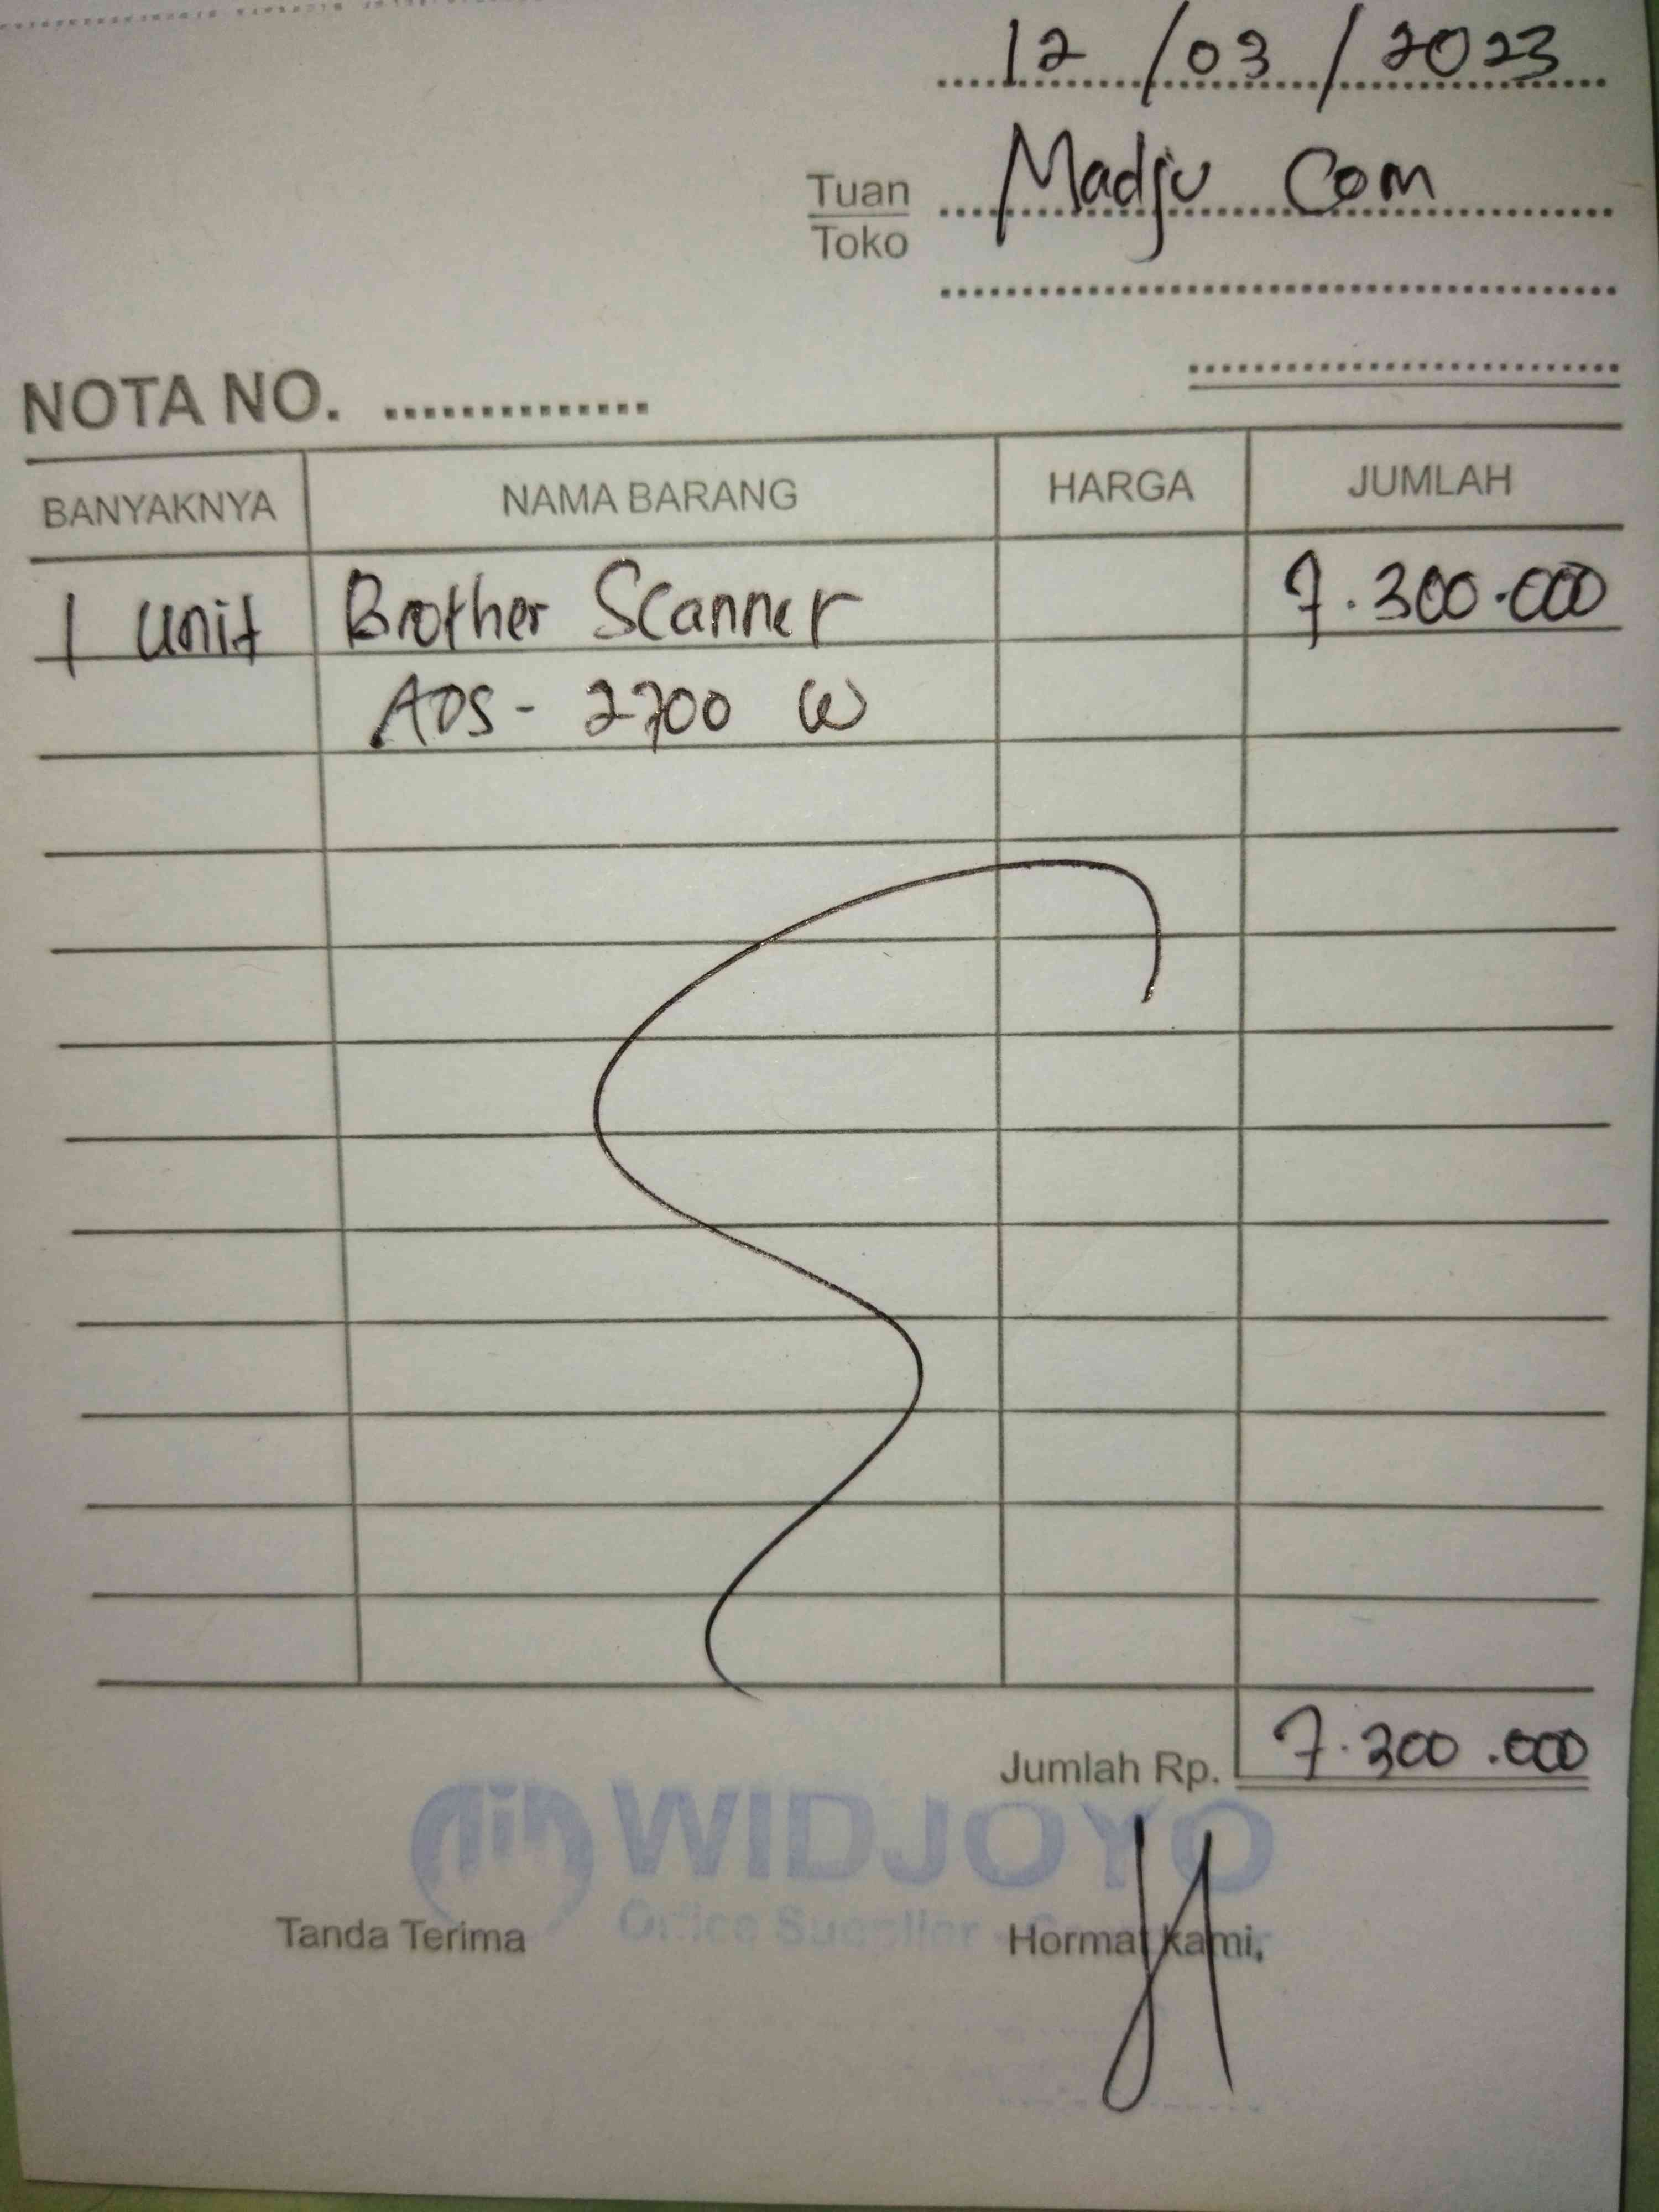 12/03/2023
Tuan Madju Com
Toko
NOTA NO. ..............
BANYAKNYA NAMA BARANG HARGA JUMLAH
1 unit Brother Scanner 7.300.000
ADS - 2700 W
Jumlah Rp. 7.300.000
WIDJOYO
Office Supplier
Tanda Terima Hormat kami,